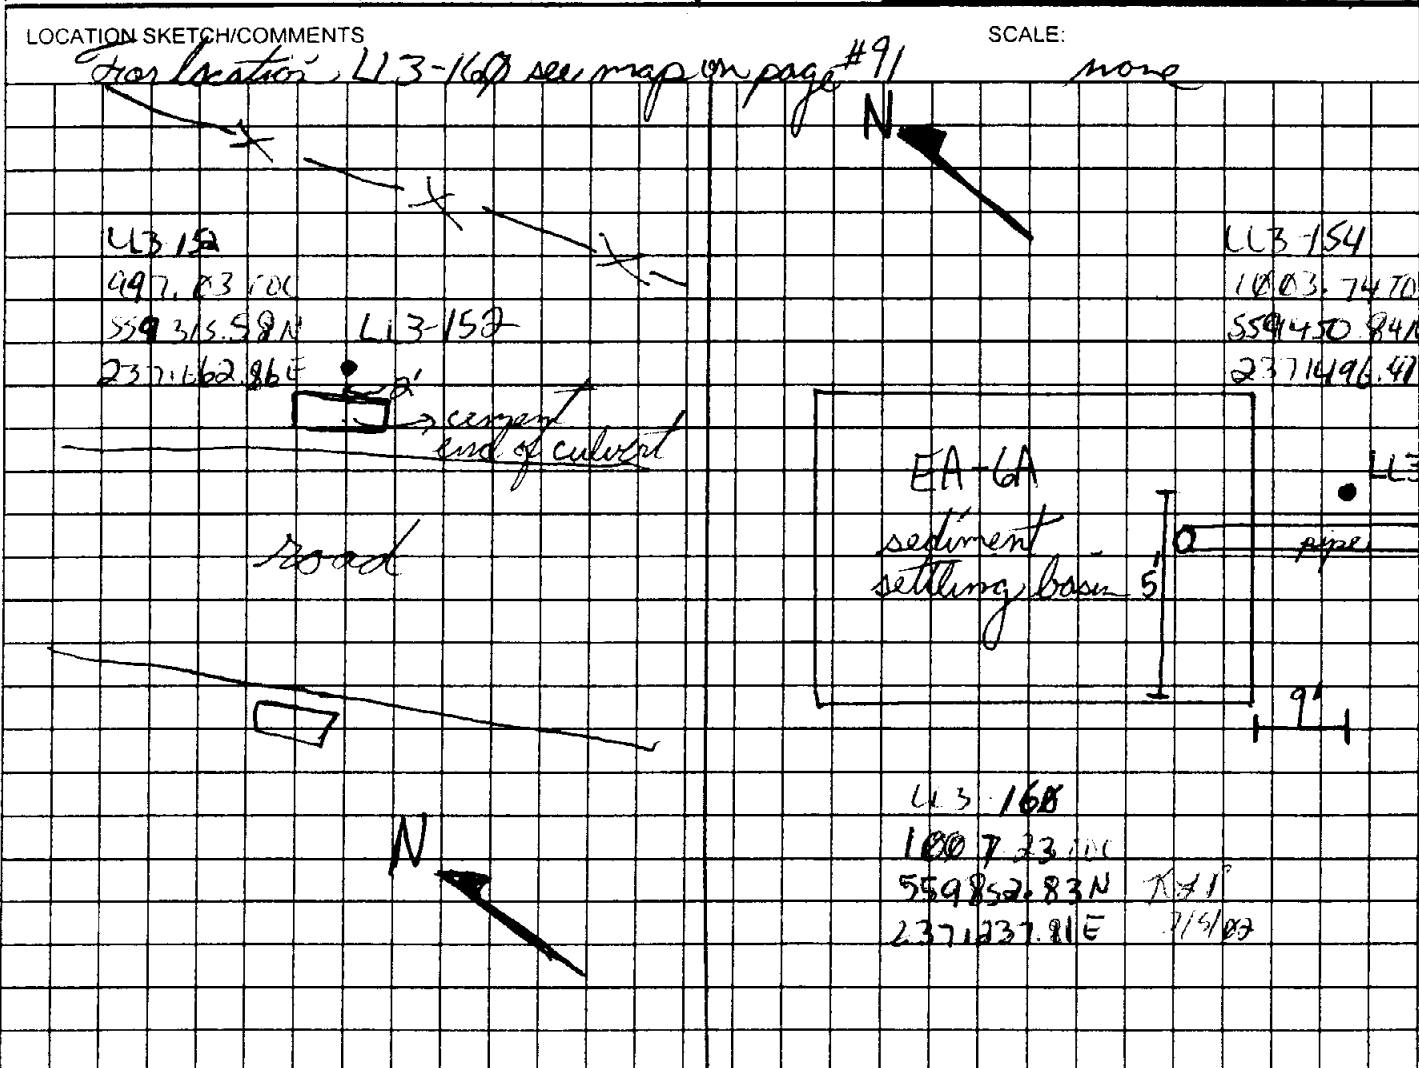 LOCATION SKETCH/COMMENTS
SCALE:
For location LL3-160 see map on page #91
none
N
LL3-152
997.03 TOC
559315.58N
LL3-152
2'
cement
end of culvert
road
N
LL3-154
1003.74 TO
559450.84N
EA-6A
sediment
settling basin
5'
LL3
pipe
9'
LL3-160
1007.23 TOC
559852.83N
2371237.81E